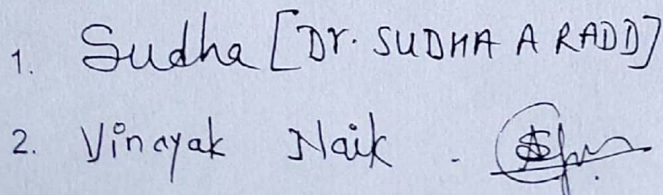 1. Sudha [Dr. SUDHA A RADD]
2. Vinayak Naik -